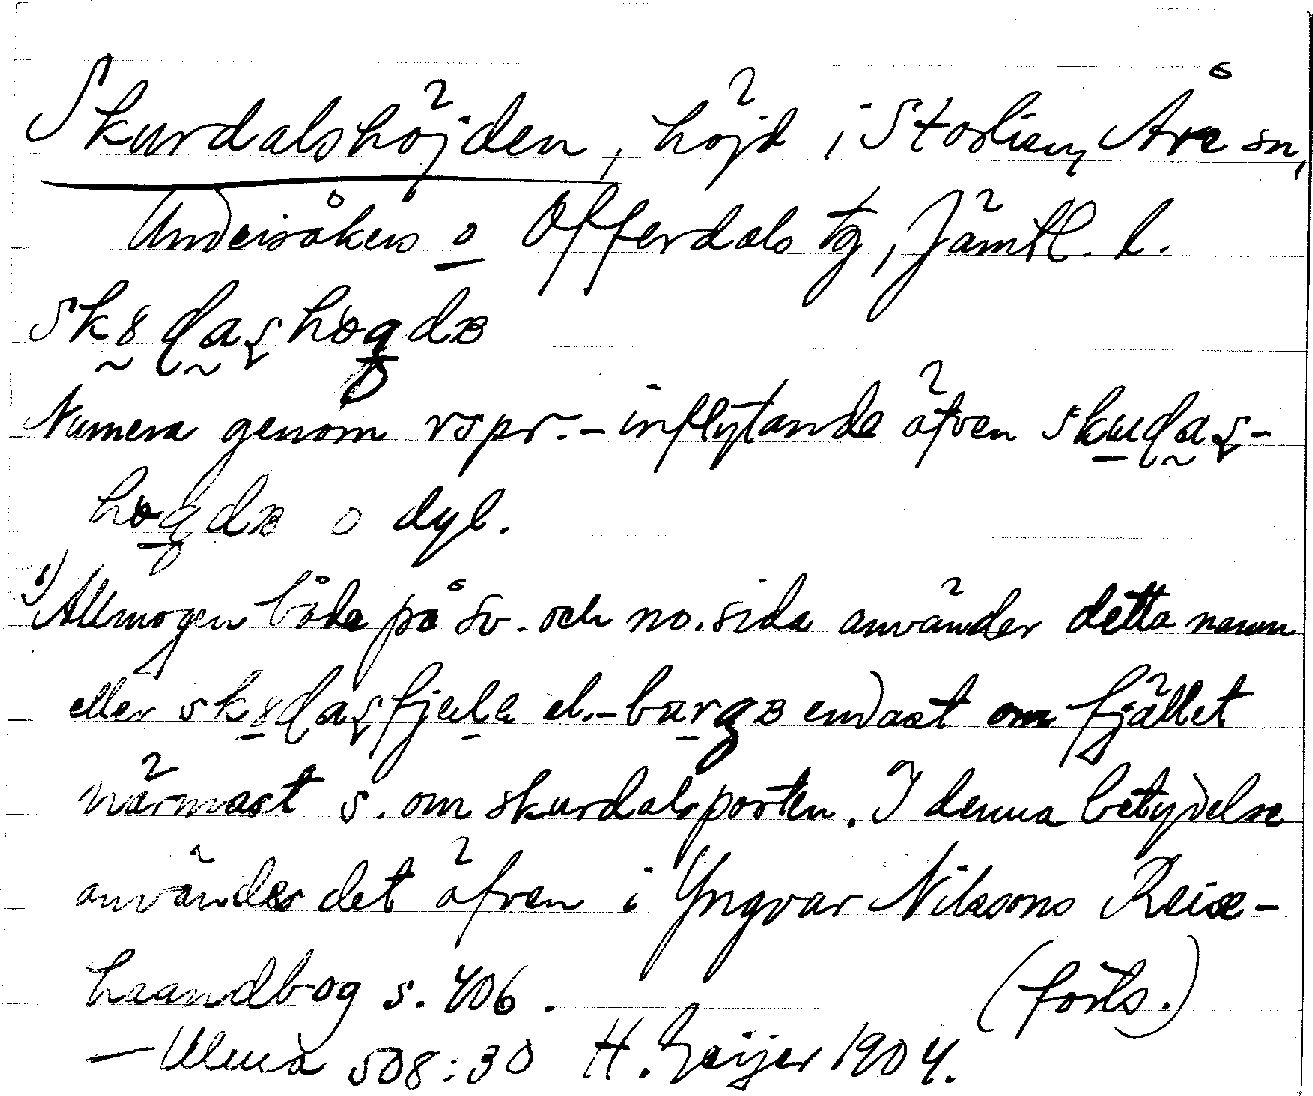 Skurdalshöjden, höjd i Storlien, Åre sn,
Undersåkers o Offerdals tg, Jämtl. l.
Numera genom rspr.-inflytande äfven
o dyl.
1) Allmogen både på sv. och no. sida använder detta namn
eller el. endast om fjället
närmast s. om skurdalsporten. I denna betydelse
användes det äfven i Yngvar Nilssons Reise-
haandbog s. 406. (forts.)
— Ulma 508:30 H. Geijer 1904.